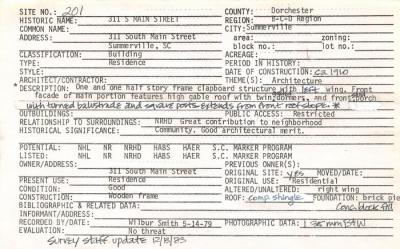 SITE NO.: 201 COUNTY: Dorchester
HISTORIC NAME: 311 S MAIN STREET REGION: B-C-D Region
COMMON NAME: CITY: Summerville
ADDRESS: 311 South Main Street area: zoning:
Summerville, SC block no.: lot no.:
CLASSIFICATION: Building ACREAGE:
TYPE: Residence PERIOD IN HISTORY:
STYLE: DATE OF CONSTRUCTION: ca 1910
ARCHITECT/CONTRACTOR: THEME(S): Architecture
*DESCRIPTION: One and one half story frame clapboard structure with left wing. Front
facade of main portion features high gable roof with twin dormers, and front porch
with turned balustrade and square posts extends from front roof slope. *
OUTBUILDINGS: PUBLIC ACCESS: Restricted
RELATIONSHIP TO SURROUNDINGS: NRHD Great contribution to neighborhood
HISTORICAL SIGNIFICANCE: Community. Good architectural merit.
POTENTIAL: NHL NR NRHD HABS HAER S.C. MARKER PROGRAM
LISTED: NHL NR NRHD HABS HAER S.C. MARKER PROGRAM
OWNER/ADDRESS: PREVIOUS OWNER(S):
311 South Main Street ORIGINAL SITE: yes MOVED/DATE:
PRESENT USE: Residence ORIGINAL USE: Residential
CONDITION: Good ALTERED/UNALTERED: right wing
CONSTRUCTION: Wooden frame ROOF: comp. shingle FOUNDATION: brick pie
BIBLIOGRAPHIC & RELATED DATA: Conc. block fill
INFORMANT/ADDRESS:
RECORDED BY/DATE: Wilbur Smith 5-14-79 PHOTOGRAPHIC DATA: 35mm B&W
EVALUATION: No threat
Survey staff update 12/13/83